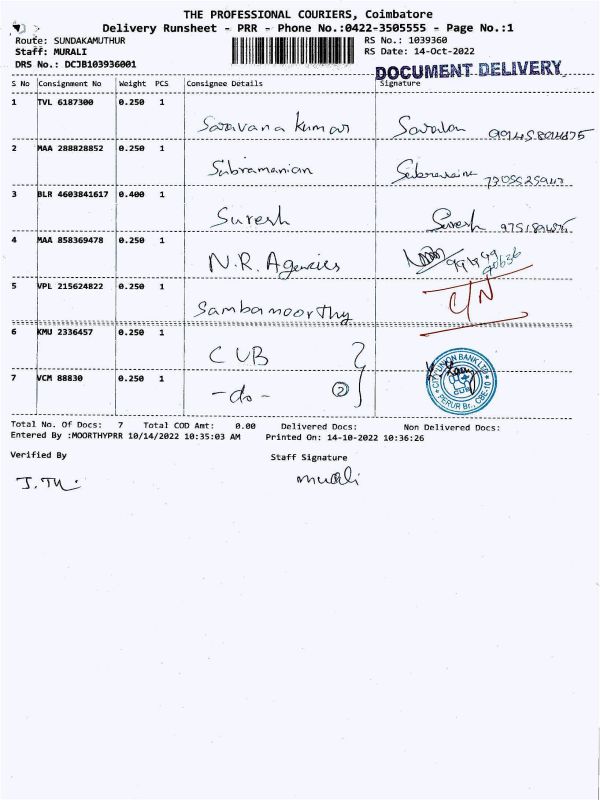 THE PROFESSIONAL COURIERS, Coimbatore
Delivery Runsheet - PRR - Phone No.:0422-3505555 - Page No.:1
Route: SUNDAKAMUTHUR RS No.: 1039360
Staff: MURALI RS Date: 14-Oct-2022
DRS No.: DCJB103936001
DOCUMENT DELIVERY
S No Consignment No Weight PCS Consignee Details Signature
1 TVL 6187300 0.250 1
Saravana kumar
2 MAA 288828852 0.250 1
Subramanian
3 BLR 4603841617 0.400 1
Suresh Suresh
4 MAA 858369478 0.250 1
N.R. Agencies
5 VPL 215624822 0.250 1
Sambamoorthy
6 KMU 2336457 0.250 1
CUB
7 VCM 88830 0.250 1
-do- 2
CITY UNION BANK LTD
PERUR Br., CBE-10
Total No. Of Docs: 7 Total COD Amt: 0.00 Delivered Docs: Non Delivered Docs:
Entered By :MOORTHYPRR 10/14/2022 10:35:03 AM Printed On: 14-10-2022 10:36:26
Verified By Staff Signature
murali